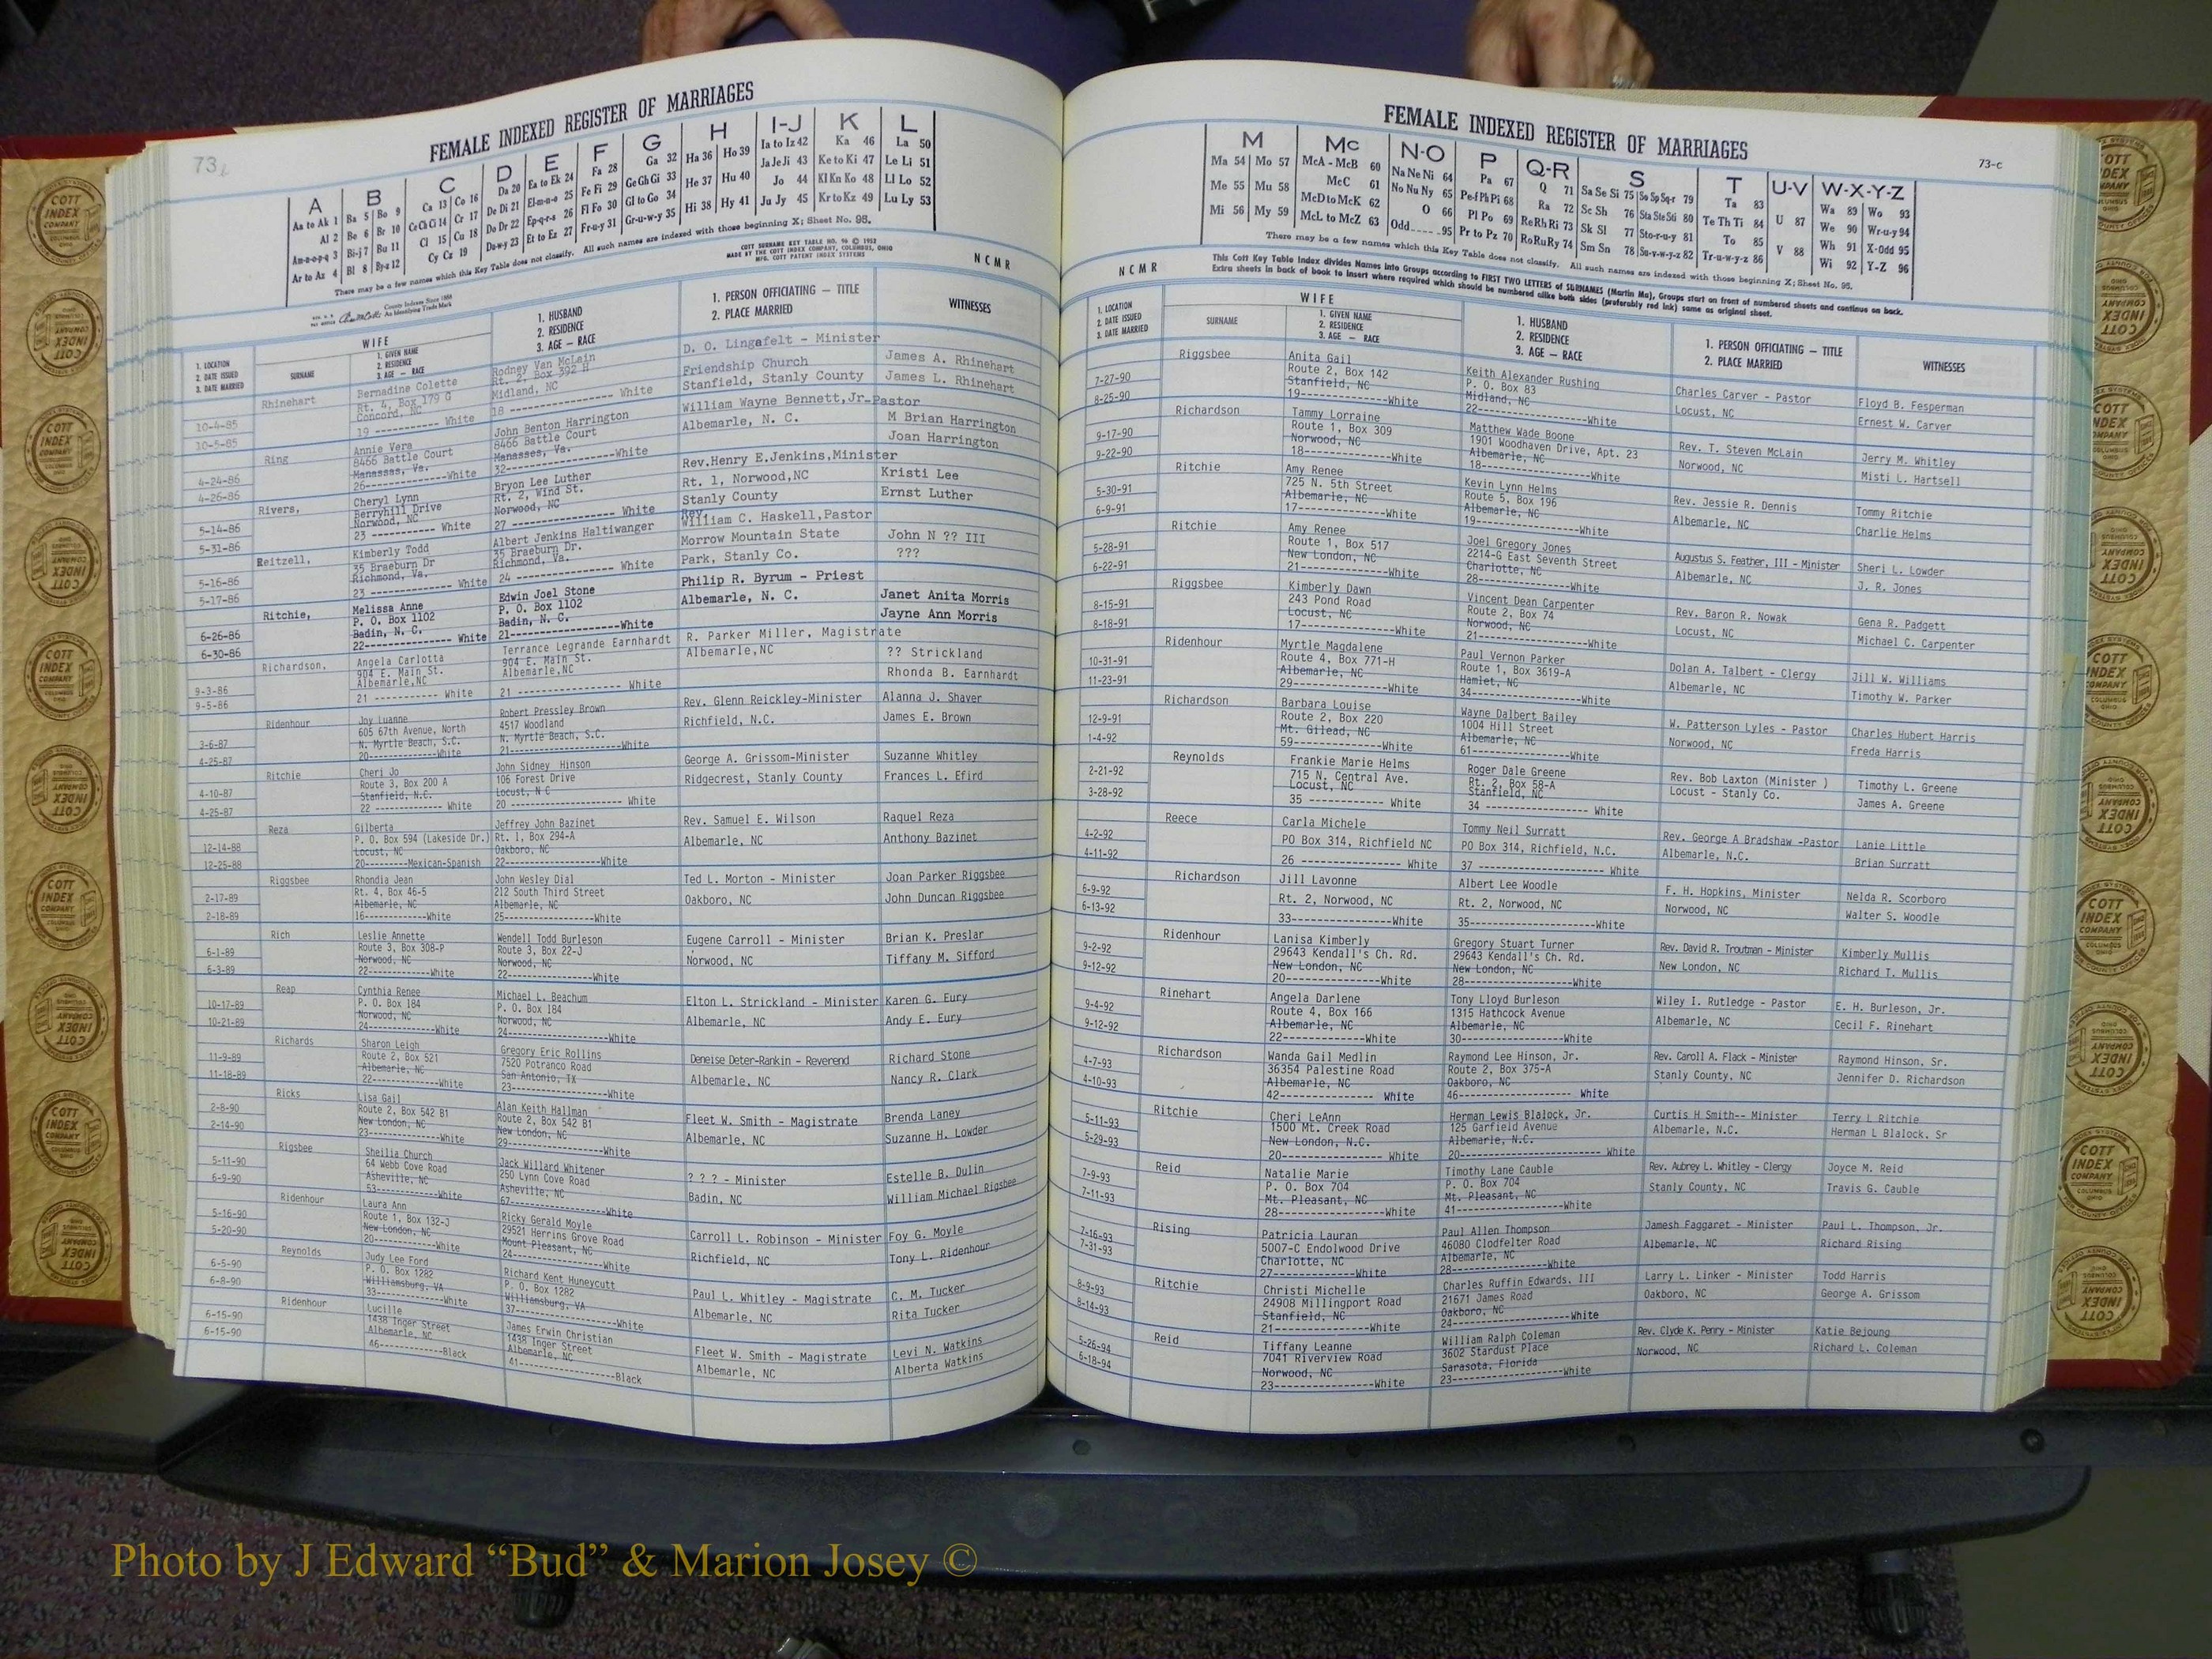 73
FEMALE INDEXED REGISTER OF MARRIAGES
A B C D E F G H I-J K L
Aa to Ak 1 Ba 5 Bo 9 Ca 13 Co 16 Da 20 Ea to Ek 24 Fa 28 Ga 32 Ha 36 Ho 39 Ia to Iz 42 Ka 46 La 50
Al 2 Be 6 Br 10 Ce Ch Ci 14 Cr 17 De Di 21 El-m-n-o 25 Fe Fi 29 Ge Gh Gi 33 He 37 Hu 40 Ja Je Ji 43 Ke to Ki 47 Le Li 51
Am-n-o-p-q 3 Bi-j 7 Bu 11 Cl 15 Cu 18 Do Dr 22 Ep-q-r-s 26 Fl Fo 30 Gl to Go 34 Hi 38 Hy 41 Jo 44 Kl Kn Ko 48 Ll Lo 52
Ar to Az 4 Bl 8 By-z 12 Cy Cz 19 Du-w-y 23 Et to Ez 27 Fr-u-y 31 Gr-u-w-y 35 Ju Jy 45 Kr to Kz 49 Lu Ly 53
There may be a few names which this Key Table does not classify. All such names are indexed with those beginning X; Sheet No. 95.
COTT SURNAME KEY TABLE NO. 96 © 1952
MADE BY THE COTT INDEX COMPANY, COLUMBUS, OHIO
MFG. COTT PATENT INDEX SYSTEMS
County Indexes Since 1888
An Identifying Trade Mark
N C M R
1. LOCATION
2. DATE ISSUED
3. DATE MARRIED
WIFE
SURNAME
1. GIVEN NAME
2. RESIDENCE
3. AGE — RACE
1. HUSBAND
2. RESIDENCE
3. AGE — RACE
1. PERSON OFFICIATING — TITLE
2. PLACE MARRIED
WITNESSES
10-4-85
10-5-85
Rhinehart
Bernadine Colette
Rt. 4, Box 179 G
Concord, NC
19 ----------- White
Rodney Van McLain
Rt. 2, Box 392 H
Midland, NC
18 ---------------- White
D. O. Lingafelt - Minister
Friendship Church
Stanfield, Stanly County
James A. Rhinehart
James L. Rhinehart
4-24-86
4-26-86
Ring
Annie Vera
8466 Battle Court
Manassas, Va.
26------------White
John Benton Harrington
8466 Battle Court
Manasses, Va.
32---------------White
William Wayne Bennett,Jr-Pastor
Albemarle, N. C.
M Brian Harrington
Joan Harrington
5-14-86
5-31-86
Rivers,
Cheryl Lynn
Berryhill Drive
Norwood, NC
23 ------- White
Bryon Lee Luther
Rt. 2, Wind St.
Norwood, NC
27 --------------- White
Rev.Henry E.Jenkins,Minister
Rt. 1, Norwood,NC
Stanly County
Kristi Lee
Ernst Luther
5-16-86
5-17-86
Reitzell,
Kimberly Todd
35 Braeburn Dr
Richmond, Va.
23 ------------- White
Albert Jenkins Haltiwanger
35 Braeburn Dr.
Richmond, Va.
24 -------------- White
Rev.
William C. Haskell,Pastor
Morrow Mountain State
Park, Stanly Co.
John N ?? III
???
6-26-86
6-30-86
Ritchie,
Melissa Anne
P. O. Box 1102
Badin, N. C.
22------------- White
Edwin Joel Stone
P. O. Box 1102
Badin, N. C.
21----------------White
Philip R. Byrum - Priest
Albemarle, N. C.
Janet Anita Morris
Jayne Ann Morris
9-3-86
9-5-86
Richardson,
Angela Carlotta
904 E. Main St.
Albemarle,NC
21 ---------- White
Terrance Legrande Earnhardt
904 E. Main St.
Albemarle,NC
21 --------------- White
R. Parker Miller, Magistrate
Albemarle,NC
?? Strickland
Rhonda B. Earnhardt
3-6-87
4-25-87
Ridenhour
Joy Luanne
605 67th Avenue, North
N. Myrtle Beach, S.C.
20-------------White
Robert Pressley Brown
4517 Woodland
N. Myrtle Beach, S.C.
21------------------White
Rev. Glenn Reickley-Minister
Richfield, N.C.
Alanna J. Shaver
James E. Brown
4-10-87
4-25-87
Ritchie
Cheri Jo
Route 3, Box 200 A
Stanfield, N.C.
22 ------------ White
John Sidney Hinson
106 Forest Drive
Locust, N C
20 ----------------- White
George A. Grissom-Minister
Ridgecrest, Stanly County
Suzanne Whitley
Frances L. Efird
12-14-88
12-25-88
Reza
Gilberta
P. O. Box 594 (Lakeside Dr.)
Locust, NC
20---------Mexican-Spanish
Jeffrey John Bazinet
Rt. 1, Box 294-A
Oakboro, NC
22-----------------White
Rev. Samuel E. Wilson
Albemarle, NC
Raquel Reza
Anthony Bazinet
2-17-89
2-18-89
Riggsbee
Rhondia Jean
Rt. 4, Box 46-5
Albemarle, NC
16-----------White
John Wesley Dial
212 South Third Street
Albemarle, NC
25---------------White
Ted L. Morton - Minister
Oakboro, NC
Joan Parker Riggsbee
John Duncan Riggsbee
6-1-89
6-3-89
Rich
Leslie Annette
Route 3, Box 308-P
Norwood, NC
22------------White
Wendell Todd Burleson
Route 3, Box 22-J
Norwood, NC
22---------------White
Eugene Carroll - Minister
Norwood, NC
Brian K. Preslar
Tiffany M. Sifford
10-17-89
10-21-89
Reap
Cynthia Renee
P. O. Box 184
Norwood, NC
24-------------White
Michael L. Beachum
P. O. Box 184
Norwood, NC
24------------------White
Elton L. Strickland - Minister
Albemarle, NC
Karen G. Eury
Andy E. Eury
11-9-89
11-18-89
Richards
Sharon Leigh
Route 2, Box 521
Albemarle, NC
22-------------White
Gregory Eric Rollins
7520 Potranco Road
San Antonio, TX
23-----------------White
Deneise Deter-Rankin - Reverend
Albemarle, NC
Richard Stone
Nancy R. Clark
2-8-90
2-14-90
Ricks
Lisa Gail
Route 2, Box 542 B1
New London, NC
23-------------White
Alan Keith Hallman
Route 2, Box 542 B1
New London, NC
29----------------White
Fleet W. Smith - Magistrate
Albemarle, NC
Brenda Laney
Suzanne H. Lowder
5-11-90
6-9-90
Rigsbee
Sheilia Church
64 Webb Cove Road
Asheville, NC
53------------White
Jack Willard Whitener
250 Lynn Cove Road
Asheville, NC
67----------------White
? ? ? - Minister
Badin, NC
Estelle B. Dulin
William Michael Rigsbee
5-16-90
5-20-90
Ridenhour
Laura Ann
Route 1, Box 132-J
New London, NC
20------------White
Ricky Gerald Moyle
29521 Herrins Grove Road
Mount Pleasant, NC
24---------------White
Carroll L. Robinson - Minister
Richfield, NC
Foy G. Moyle
Tony L. Ridenhour
6-5-90
6-8-90
Reynolds
Judy Lee Ford
P. O. Box 1282
Williamsburg, VA
33-------------White
Richard Kent Huneycutt
P. O. Box 1282
Williamsburg, VA
37-----------------White
Paul L. Whitley - Magistrate
Albemarle, NC
C. M. Tucker
Rita Tucker
6-15-90
6-15-90
Ridenhour
Lucille
1438 Inger Street
Albemarle, NC
46------------Black
James Erwin Christian
1438 Inger Street
Albemarle, NC
41-----------------Black
Fleet W. Smith - Magistrate
Albemarle, NC
Levi N. Watkins
Alberta Watkins
FEMALE INDEXED REGISTER OF MARRIAGES
73-c
M Mc N-O P Q-R S T U-V W-X-Y-Z
Ma 54 Mo 57 McA - McB 60 Na Ne Ni 64 Pa 67 Q 71 Sa Se Si 75 So Sp Sq-r 79 Ta 83 U 87 Wa 89 Wo 93
Me 55 Mu 58 McC 61 No Nu Ny 65 Pe-f Ph Pi 68 Ra 72 Sc Sh 76 Sta Ste Sti 80 Te Th Ti 84 We 90 Wr-u-y 94
Mi 56 My 59 McD to McK 62 O 66 Pl Po 69 Re Rh Ri 73 Sk Sl 77 Sto-r-u-y 81 To 85 V 88 Wh 91 X-Odd 95
McL to McZ 63 Odd 95 Pr to Pz 70 Ro Ru Ry 74 Sm Sn 78 Su-v-w-y-z 82 Tr-u-w-y-z 86 Wi 92 Y-Z 96
There may be a few names which this Key Table does not classify. All such names are indexed with those beginning X; Sheet No. 95.
This Cott Key Table Index divides Names into Groups according to FIRST TWO LETTERS of SURNAMES (Martin Ma), Groups start on front of numbered sheets and continue on back.
Extra sheets in back of book to insert where required which should be numbered alike both sides (preferably red ink) same as original sheet.
N C M R
1. LOCATION
2. DATE ISSUED
3. DATE MARRIED
WIFE
SURNAME
1. GIVEN NAME
2. RESIDENCE
3. AGE — RACE
1. HUSBAND
2. RESIDENCE
3. AGE — RACE
1. PERSON OFFICIATING — TITLE
2. PLACE MARRIED
WITNESSES
7-27-90
8-25-90
Riggsbee
Anita Gail
Route 2, Box 142
Stanfield, NC
19--------------White
Keith Alexander Rushing
P. O. Box 83
Midland, NC
22-----------------White
Charles Carver - Pastor
Locust, NC
Floyd B. Fesperman
Ernest W. Carver
9-17-90
9-22-90
Richardson
Tammy Lorraine
Route 1, Box 309
Norwood, NC
18--------------White
Matthew Wade Boone
1901 Woodhaven Drive, Apt. 23
Albemarle, NC
18-----------------White
Rev. T. Steven McLain
Norwood, NC
Jerry M. Whitley
Misti L. Hartsell
5-30-91
6-9-91
Ritchie
Amy Renee
725 N. 5th Street
Albemarle, NC
17--------------White
Kevin Lynn Helms
Route 5, Box 196
Albemarle, NC
19----------------White
Rev. Jessie R. Dennis
Albemarle, NC
Tommy Ritchie
Charlie Helms
5-28-91
6-22-91
Ritchie
Amy Renee
Route 1, Box 517
New London, NC
21--------------White
Joel Gregory Jones
2214-G East Seventh Street
Charlotte, NC
28----------------White
Augustus S. Feather, III - Minister
Albemarle, NC
Sheri L. Lowder
J. R. Jones
8-15-91
8-18-91
Riggsbee
Kimberly Dawn
243 Pond Road
Locust, NC
17---------------White
Vincent Dean Carpenter
Route 2, Box 74
Norwood, NC
21-----------------White
Rev. Baron R. Nowak
Locust, NC
Gena R. Padgett
Michael C. Carpenter
10-31-91
11-23-91
Ridenhour
Myrtle Magdalene
Route 4, Box 771-H
Albemarle, NC
29--------------White
Paul Vernon Parker
Route 1, Box 3619-A
Hamlet, NC
34-----------------White
Dolan A. Talbert - Clergy
Albemarle, NC
Jill W. Williams
Timothy W. Parker
12-9-91
1-4-92
Richardson
Barbara Louise
Route 2, Box 220
Mt. Gilead, NC
59-------------White
Wayne Dalbert Bailey
1004 Hill Street
Albemarle, NC
61----------------White
W. Patterson Lyles - Pastor
Norwood, NC
Charles Hubert Harris
Freda Harris
2-21-92
3-28-92
Reynolds
Frankie Marie Helms
715 N. Central Ave.
Locust, NC
35 ------------ White
Roger Dale Greene
Rt. 2, Box 58-A
Stanfield, NC
34 ---------------- White
Rev. Bob Laxton (Minister )
Locust - Stanly Co.
Timothy L. Greene
James A. Greene
4-2-92
4-11-92
Reece
Carla Michele
PO Box 314, Richfield NC
26 --------------- White
Tommy Neil Surratt
PO Box 314, Richfield, N.C.
37 ------------------- White
Rev. George A Bradshaw -Pastor
Albemarle, N.C.
Lanie Little
Brian Surratt
6-9-92
6-13-92
Richardson
Jill Lavonne
Rt. 2, Norwood, NC
33---------------White
Albert Lee Woodle
Rt. 2, Norwood, NC
35-------------------White
F. H. Hopkins, Minister
Norwood, NC
Nelda R. Scorboro
Walter S. Woodle
9-2-92
9-12-92
Ridenhour
Lanisa Kimberly
29643 Kendall's Ch. Rd.
New London, NC
20--------------White
Gregory Stuart Turner
29643 Kendall's Ch. Rd.
New London, NC
28-----------------White
Rev. David R. Troutman - Minister
New London, NC
Kimberly Mullis
Richard T. Mullis
9-4-92
9-12-92
Rinehart
Angela Darlene
Route 4, Box 166
Albemarle, NC
22--------------White
Tony Lloyd Burleson
1315 Hathcock Avenue
Albemarle, NC
30----------------White
Wiley I. Rutledge - Pastor
Albemarle, NC
E. H. Burleson, Jr.
Cecil F. Rinehart
4-7-93
4-10-93
Richardson
Wanda Gail Medlin
36354 Palestine Road
Albemarle, NC
42-------------- White
Raymond Lee Hinson, Jr.
Route 2, Box 375-A
Oakboro, NC
46----------------- White
Rev. Caroll A. Flack - Minister
Stanly County, NC
Raymond Hinson, Sr.
Jennifer D. Richardson
5-11-93
5-29-93
Ritchie
Cheri LeAnn
1500 Mt. Creek Road
New London, N.C.
20--------------- White
Herman Lewis Blalock, Jr.
125 Garfield Avenue
Albemarle, N.C.
20---------------------- White
Curtis H Smith-- Minister
Albemarle, N.C.
Terry L Ritchie
Herman L Blalock, Sr
7-9-93
7-11-93
Reid
Natalie Marie
P. O. Box 704
Mt. Pleasant, NC
28---------------White
Timothy Lane Cauble
P. O. Box 704
Mt. Pleasant, NC
41----------------White
Rev. Aubrey L. Whitley - Clergy
Stanly County, NC
Joyce M. Reid
Travis G. Cauble
7-16-93
7-31-93
Rising
Patricia Lauran
5007-C Endolwood Drive
Charlotte, NC
27---------------White
Paul Allen Thompson
46080 Clodfelter Road
Albemarle, NC
28-----------------White
Jamesh Faggaret - Minister
Albemarle, NC
Paul L. Thompson, Jr.
Richard Rising
8-9-93
8-14-93
Ritchie
Christi Michelle
24908 Millingport Road
Stanfield, NC
21-----------------White
Charles Ruffin Edwards, III
21671 James Road
Oakboro, NC
24------------------White
Larry L. Linker - Minister
Oakboro, NC
Todd Harris
George A. Grissom
5-26-94
6-18-94
Reid
Tiffany Leanne
7041 Riverview Road
Norwood, NC
23-----------------White
William Ralph Coleman
3602 Stardust Place
Sarasota, Florida
23-----------------White
Rev. Clyde K. Penry - Minister
Norwood, NC
Katie Bejoung
Richard L. Coleman
COTT
INDEX
COMPANY
COLUMBUS
OHIO
Photo by J Edward “Bud” & Marion Josey ©